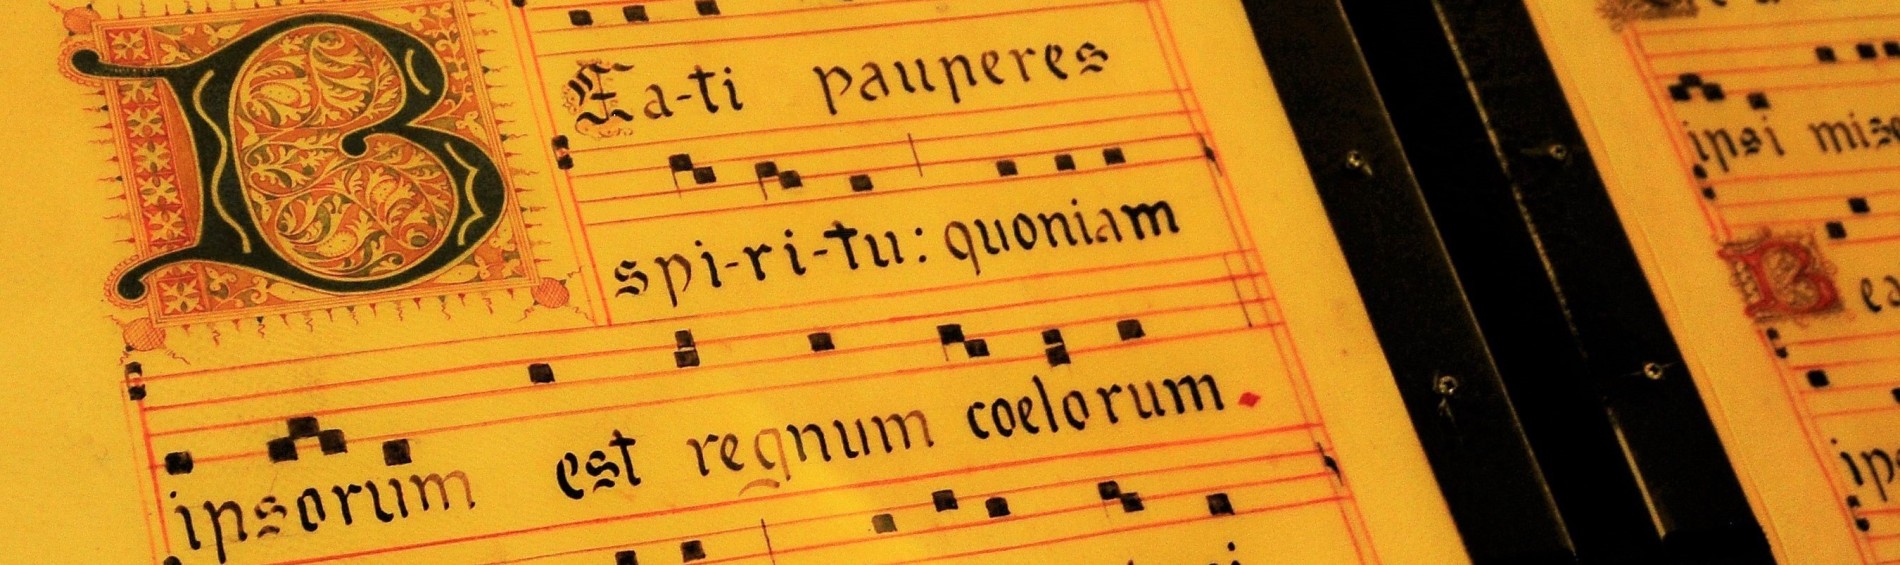 B Ea-ti pauperes
spi-ri-tu: quoniam
ipsorum est regnum coelorum.
ipsi
B ea